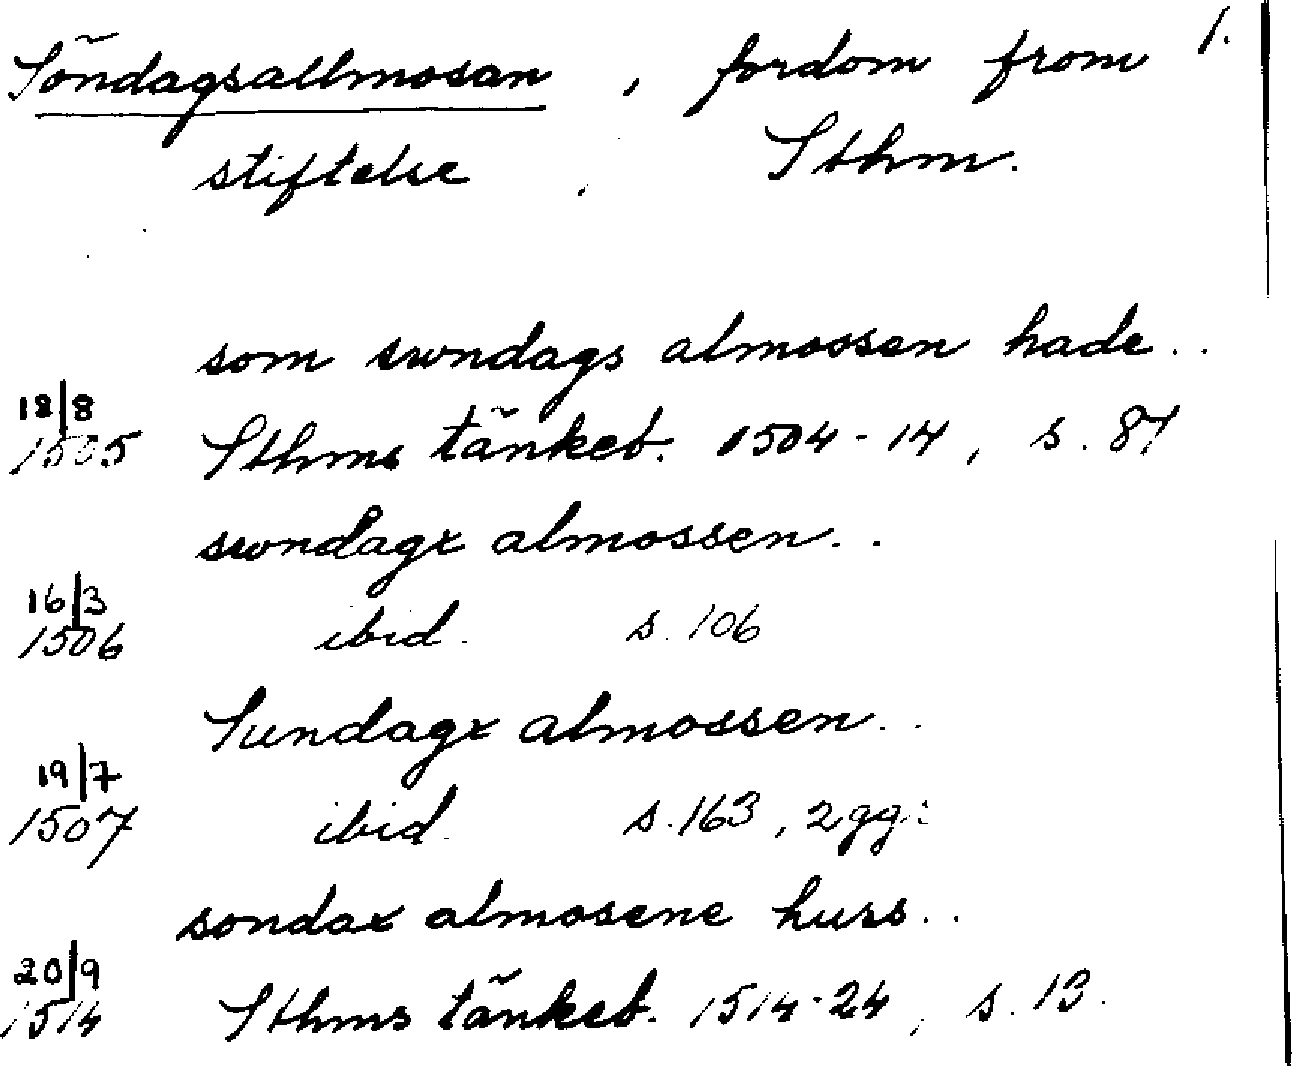 Söndagsallmosan, fordom from 1.
stiftelse, Sthm.
som swndags almossen hade..
18/8
1505 Sthms tänkeb. 1504-14, s. 87
swndagx almossen..
16/3
1506 ibid. s. 106
Sundagx almossen..
19/7
1507 ibid. s. 163, 2 gg:
sondax almosene huss..
20/9
1514 Sthms tänkeb. 1514-24, s. 13.